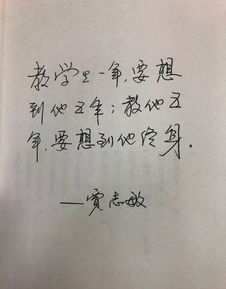 教学生一年，要想
到他五年；教他五
年，要想到他终身．
——贾志敏